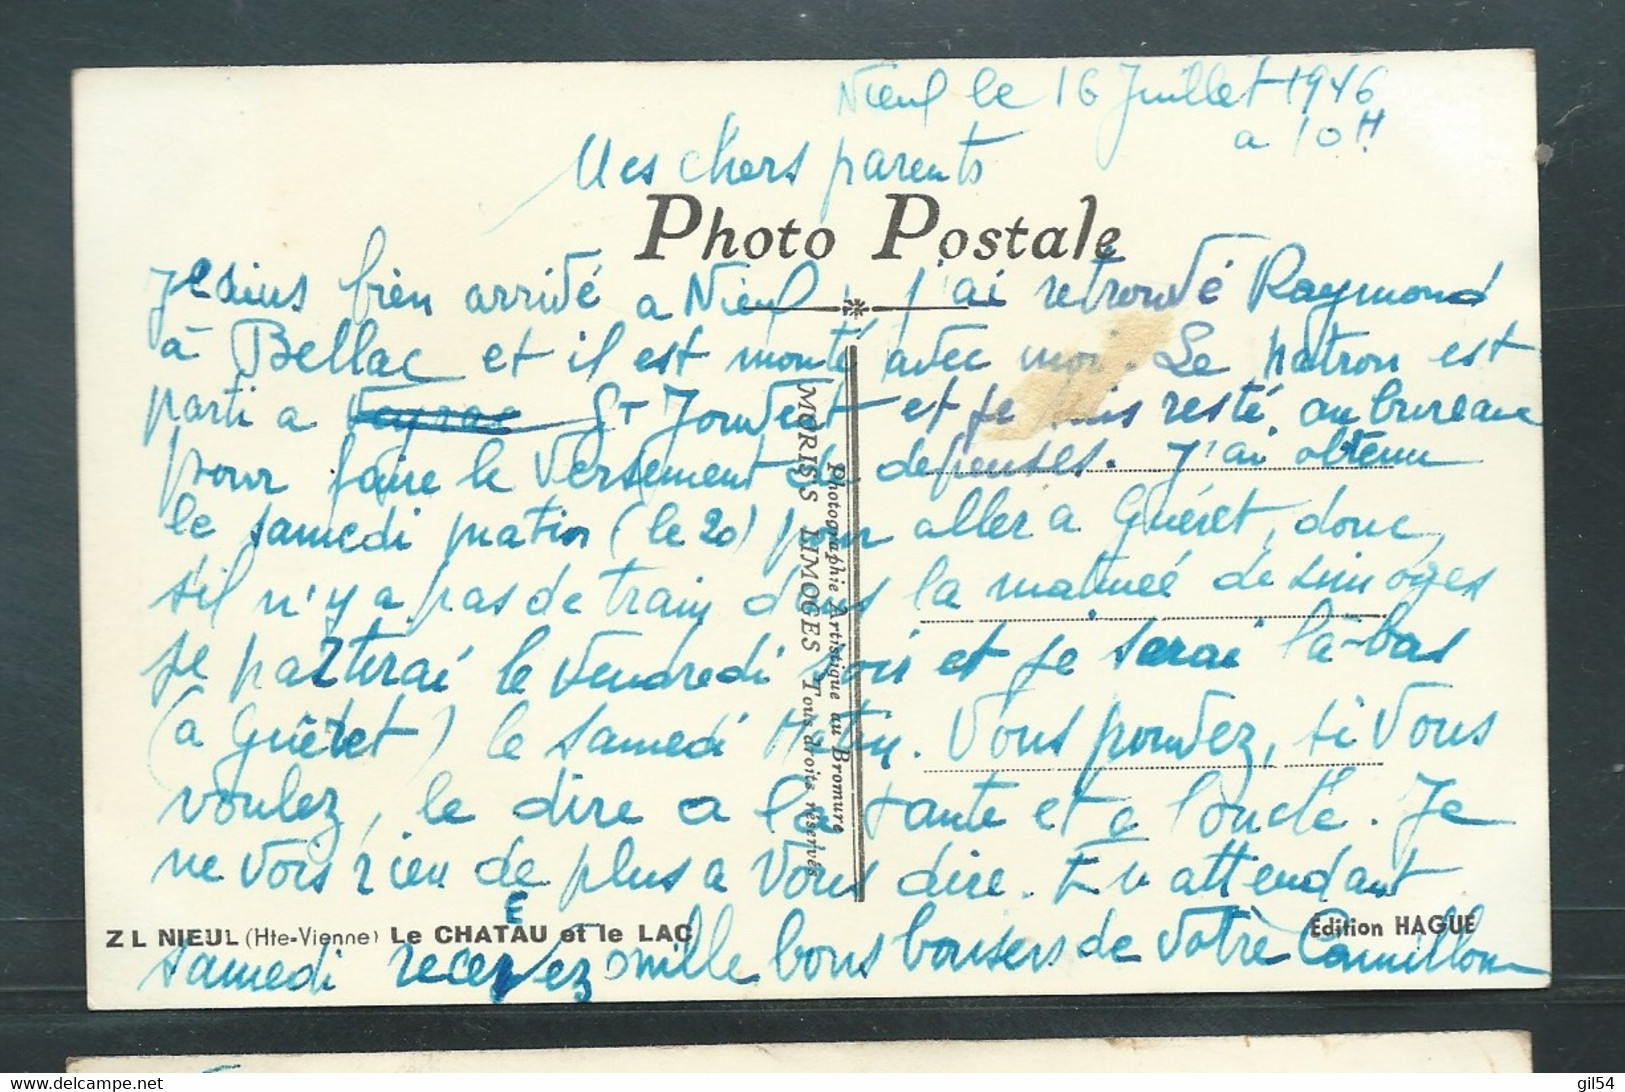 Nieul le 16 Juillet 1946
a 10H
Mes chers parents
Photo Postale
Je suis bien arrivé a Nieul, j'ai retrouvé Raymond
à Bellac et il est monté avec moi. Le patron est
parti a Veyrac St Jouvent et je suis resté au bureau
pour faire le versement de depenses. J'ai obtenu
le samedi matin (le 20) pour aller a Guéret, donc,
s'il n'y a pas de train dans la matineé de Limoges
je partirai le Vendredi soir et je serai là-bas
(a Guéret) le samedi Matin. Vous pouvez, si vous
voulez, le dire a la tante et a l'oncle. Je
ne vois rien de plus a vous dire. En attendant
samedi recevez mille bons baisers de votre Camillou
MORIS'S LIMOGES Tous droits réservés
Photographie Artistique au Bromure
Z L NIEUL (Hte-Vienne) Le CHATEAU et le LAC
Edition HAGUE
delcampe.net
gil54